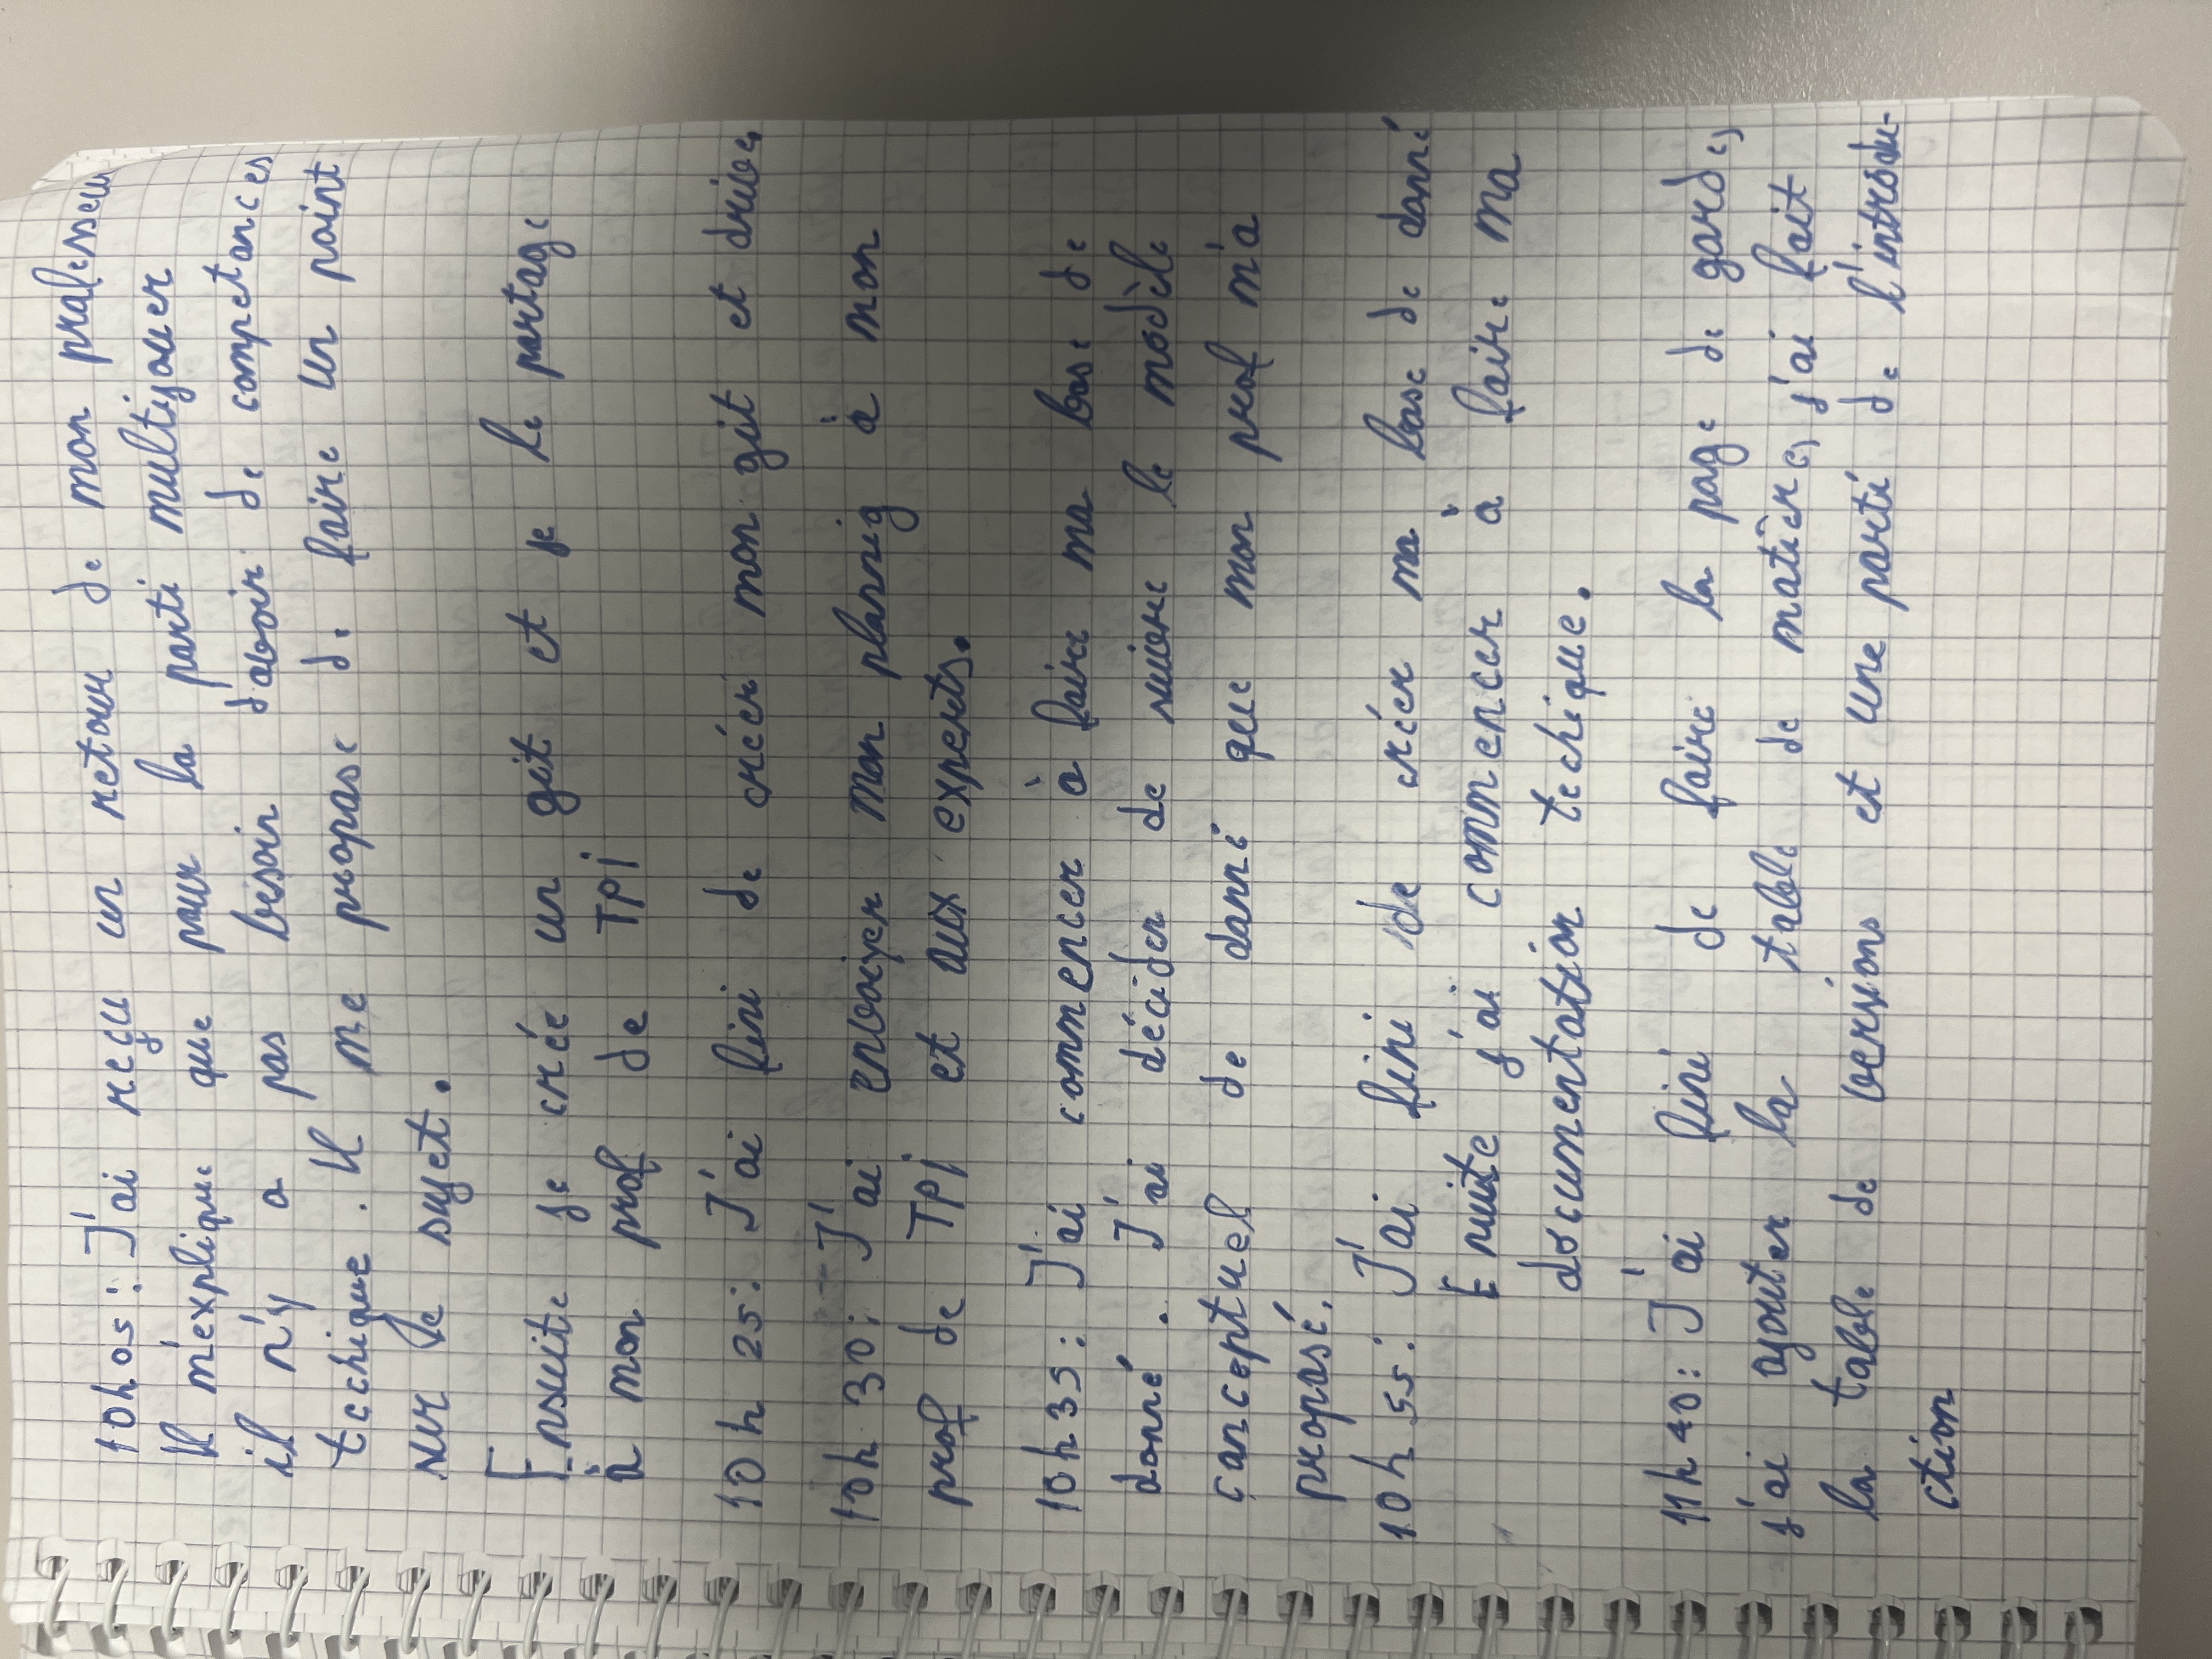 10h05: J'ai reçu un retour de mon professeur
Il m'explique que pour la parti multijouer
il n'y a pas besoin d'avoir de competances
techique. Il me propose de faire un point
sur le sujet.
Ensuite je crée un git et je le partage
à mon prof de TPI
10h 25: J'ai fini de créer mon git et drive.
10h 30: J'ai envoiyer mon plannig à mon
prof de TPI et aux experts.
10h35: J'ai commencer à faire ma base de
donné. J'ai décider de suivre le modèle
conceptuel de donné que mon prof m'a
proposé.
10h 55: J'ai fini de créer ma base de donné
Enuite j'ai commencer à faire ma
documentation techique.
11h40: J'ai fini de faire la page de garde,
j'ai ajouter la table de matière, j'ai fait
la table de versions et une parti de l'introdu-
ction